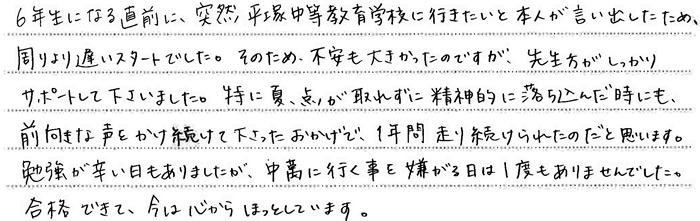 6年生になる直前に、突然、平塚中等教育学校に行きたいと本人が言い出したため、
周りより遅いスタートでした。そのため、不安も大きかったのですが、先生方がしっかり
サポートして下さいました。特に夏、点が取れずに精神的に落ち込んだ時にも、
前向きな声をかけ続けて下さったおかげで、1年間走り続けられたのだと思います。
勉強が辛い日もありましたが、中萬に行く事を嫌がる日は1度もありませんでした。
合格できて、今は心からほっとしています。